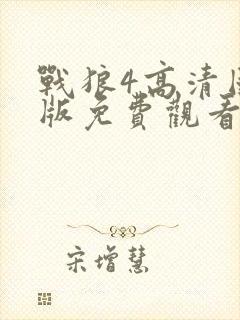 戰狼4高清
版免費觀看
宋增慧